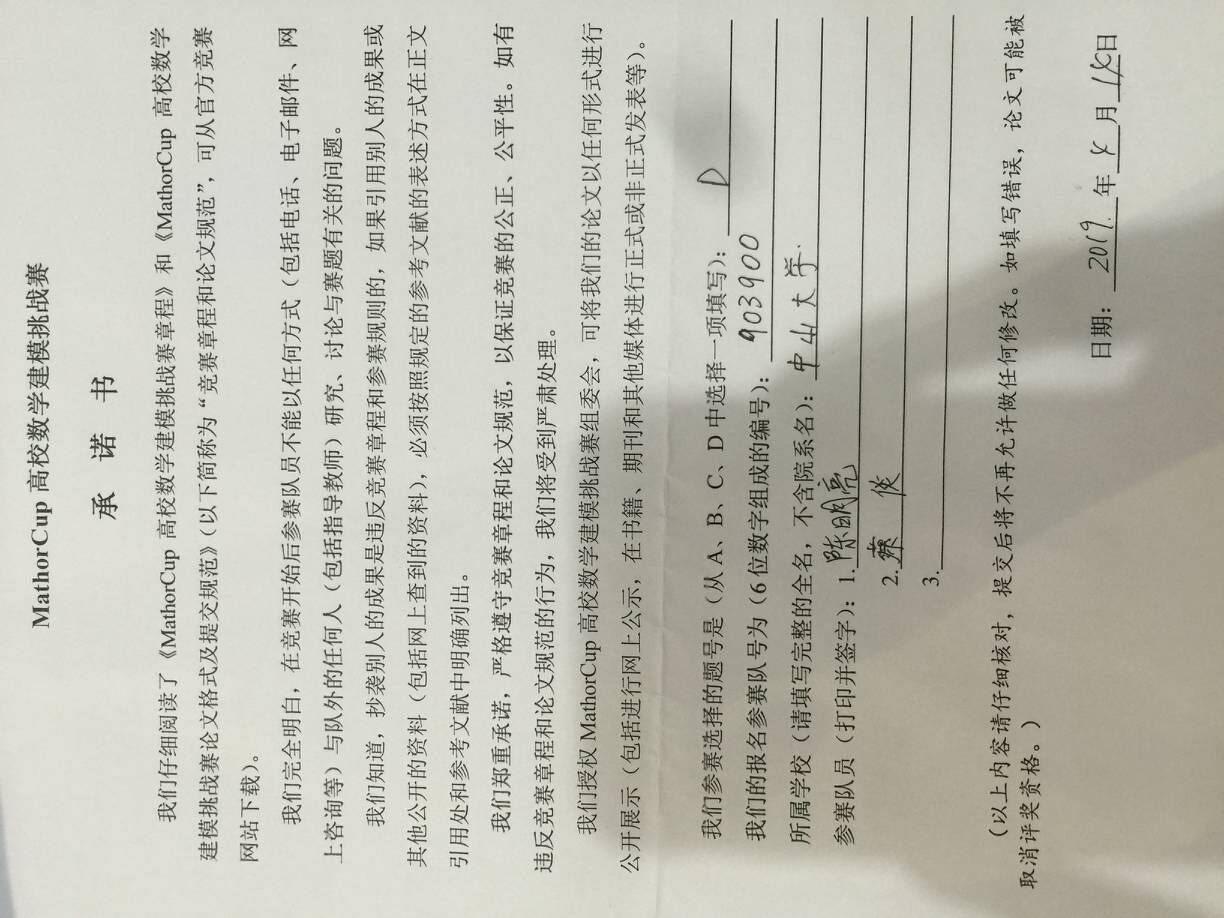 MathorCup 高校数学建模挑战赛
承 诺 书
我们仔细阅读了《MathorCup 高校数学建模挑战赛章程》和《MathorCup 高校数学
建模挑战赛论文格式及提交规范》(以下简称为“竞赛章程和论文规范”,可从官方竞赛
网站下载)。
我们完全明白,在竞赛开始后参赛队员不能以任何方式(包括电话、电子邮件、网
上咨询等)与队外的任何人(包括指导教师)研究、讨论与赛题有关的问题。
我们知道,抄袭别人的成果是违反竞赛章程和参赛规则的,如果引用别人的成果或
其他公开的资料(包括网上查到的资料),必须按照规定的参考文献的表述方式在正文
引用处和参考文献中明确列出。
我们郑重承诺,严格遵守竞赛章程和论文规范,以保证竞赛的公正、公平性。如有
违反竞赛章程和论文规范的行为,我们将受到严肃处理。
我们授权 MathorCup 高校数学建模挑战赛组委会,可将我们的论文以任何形式进行
公开展示(包括进行网上公示,在书籍、期刊和其他媒体进行正式或非正式发表等)。
我们参赛选择的题号是(从 A、B、C、D 中选择一项填写): D
我们的报名参赛队号为(6 位数字组成的编号): 903900
所属学校(请填写完整的全名,不含院系名): 中山大学
参赛队员(打印并签字):1. 陈明亮
2.
3.
(以上内容请仔细核对,提交后将不再允许做任何修改。如填写错误,论文可能被
取消评奖资格。)
日期: 2019. 年 月 日